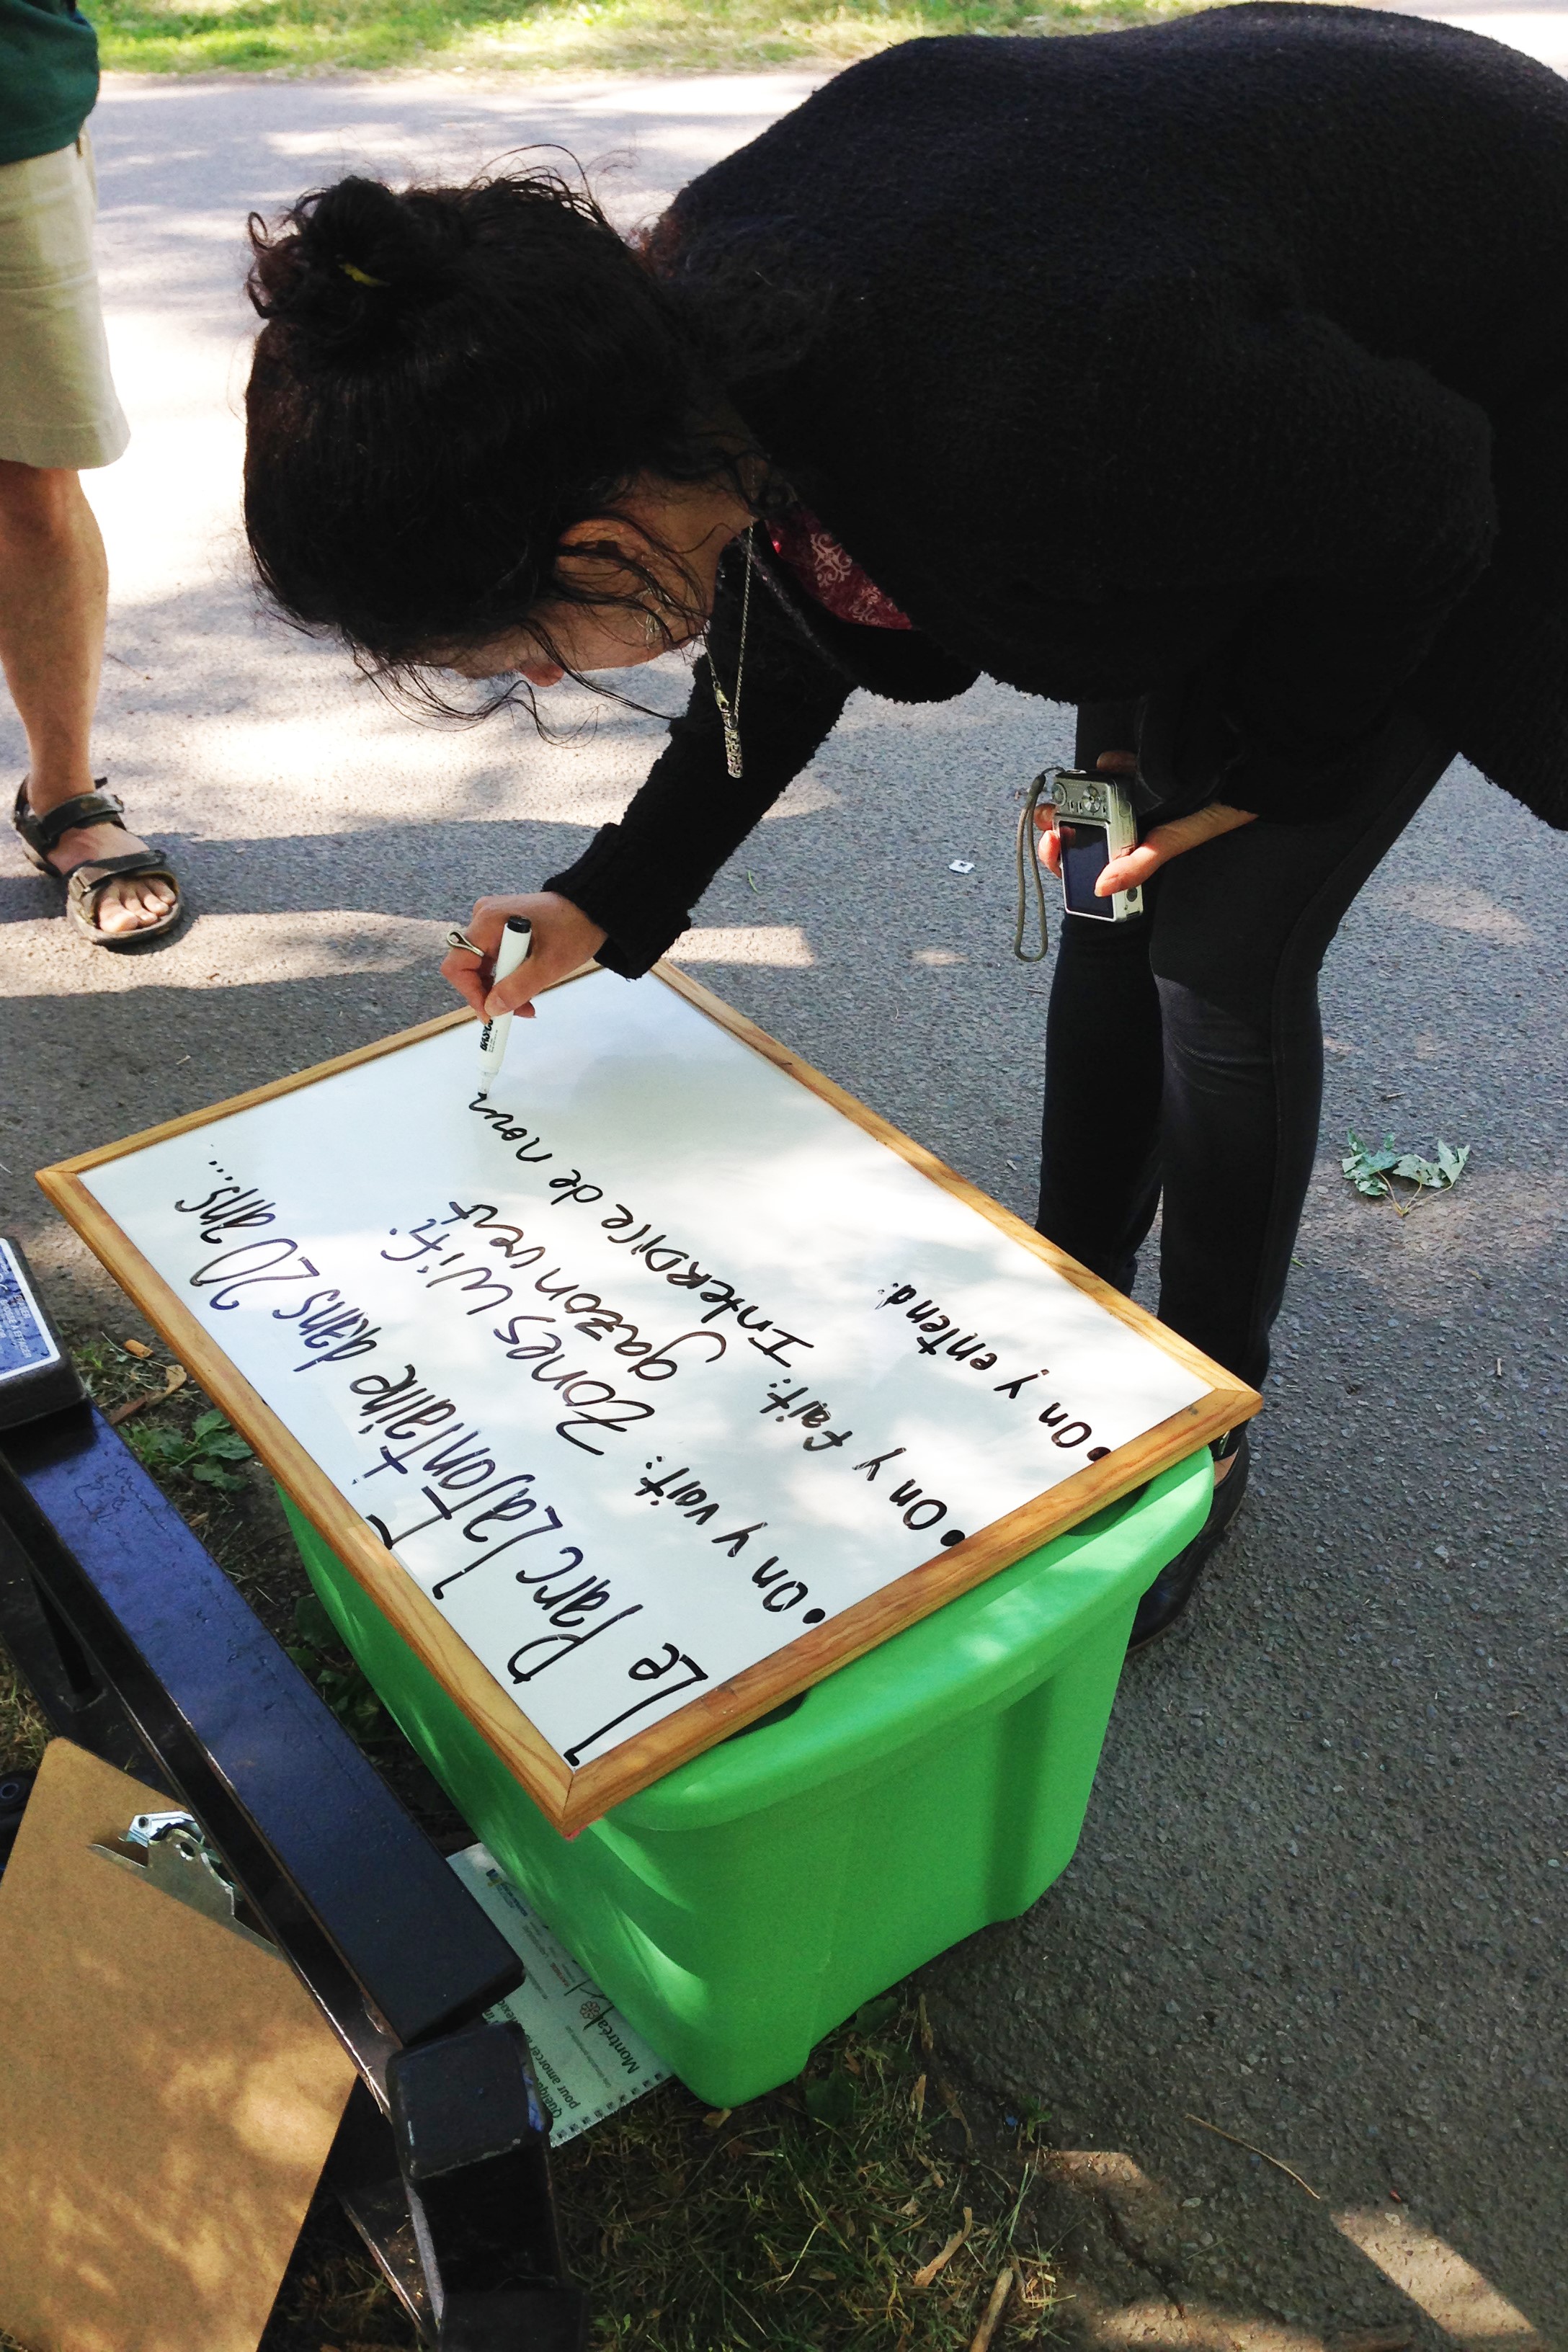 Le Parc Lafontaine dans 20 ans...
• On y voit: Zones wifi
gazon vert
• On y fait: InterDire de nour
• On y entend:
BASICS
Quelque
pour amorcer
Montréal